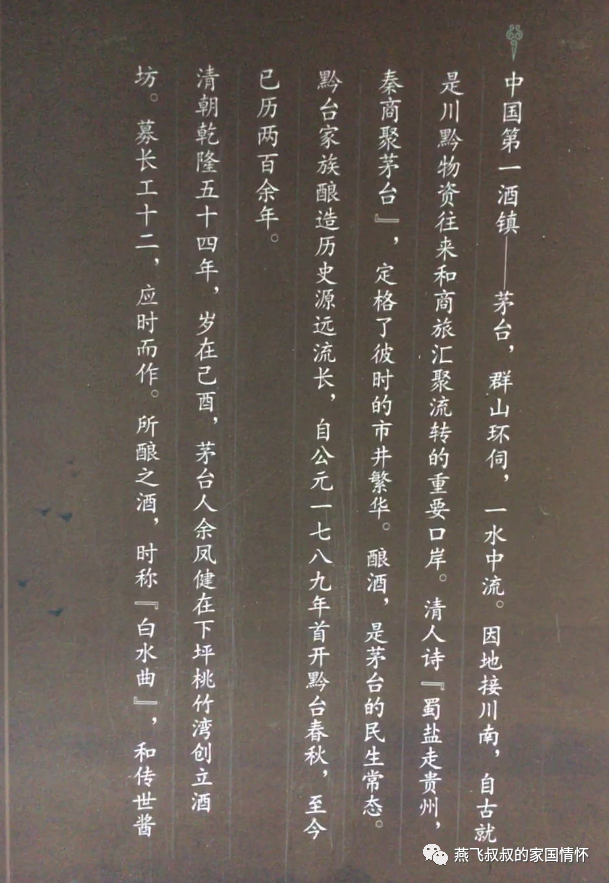 中国第一酒镇——茅台，群山环伺，一水中流。因地接川南，自古就
是川黔物资往来和商旅汇聚流转的重要口岸。清人诗『蜀盐走贵州，
秦商聚茅台』，定格了彼时的市井繁华。酿酒，是茅台的民生常态。
黔台家族酿造历史源远流长，自公元一七八九年首开黔台春秋，至今
已历两百余年。
清朝乾隆五十四年，岁在己酉，茅台人余凤健在下坪桃竹湾创立酒
坊。募长工十二，应时而作。所酿之酒，时称『白水曲』，和传世酱
燕飞叔叔的家国情怀